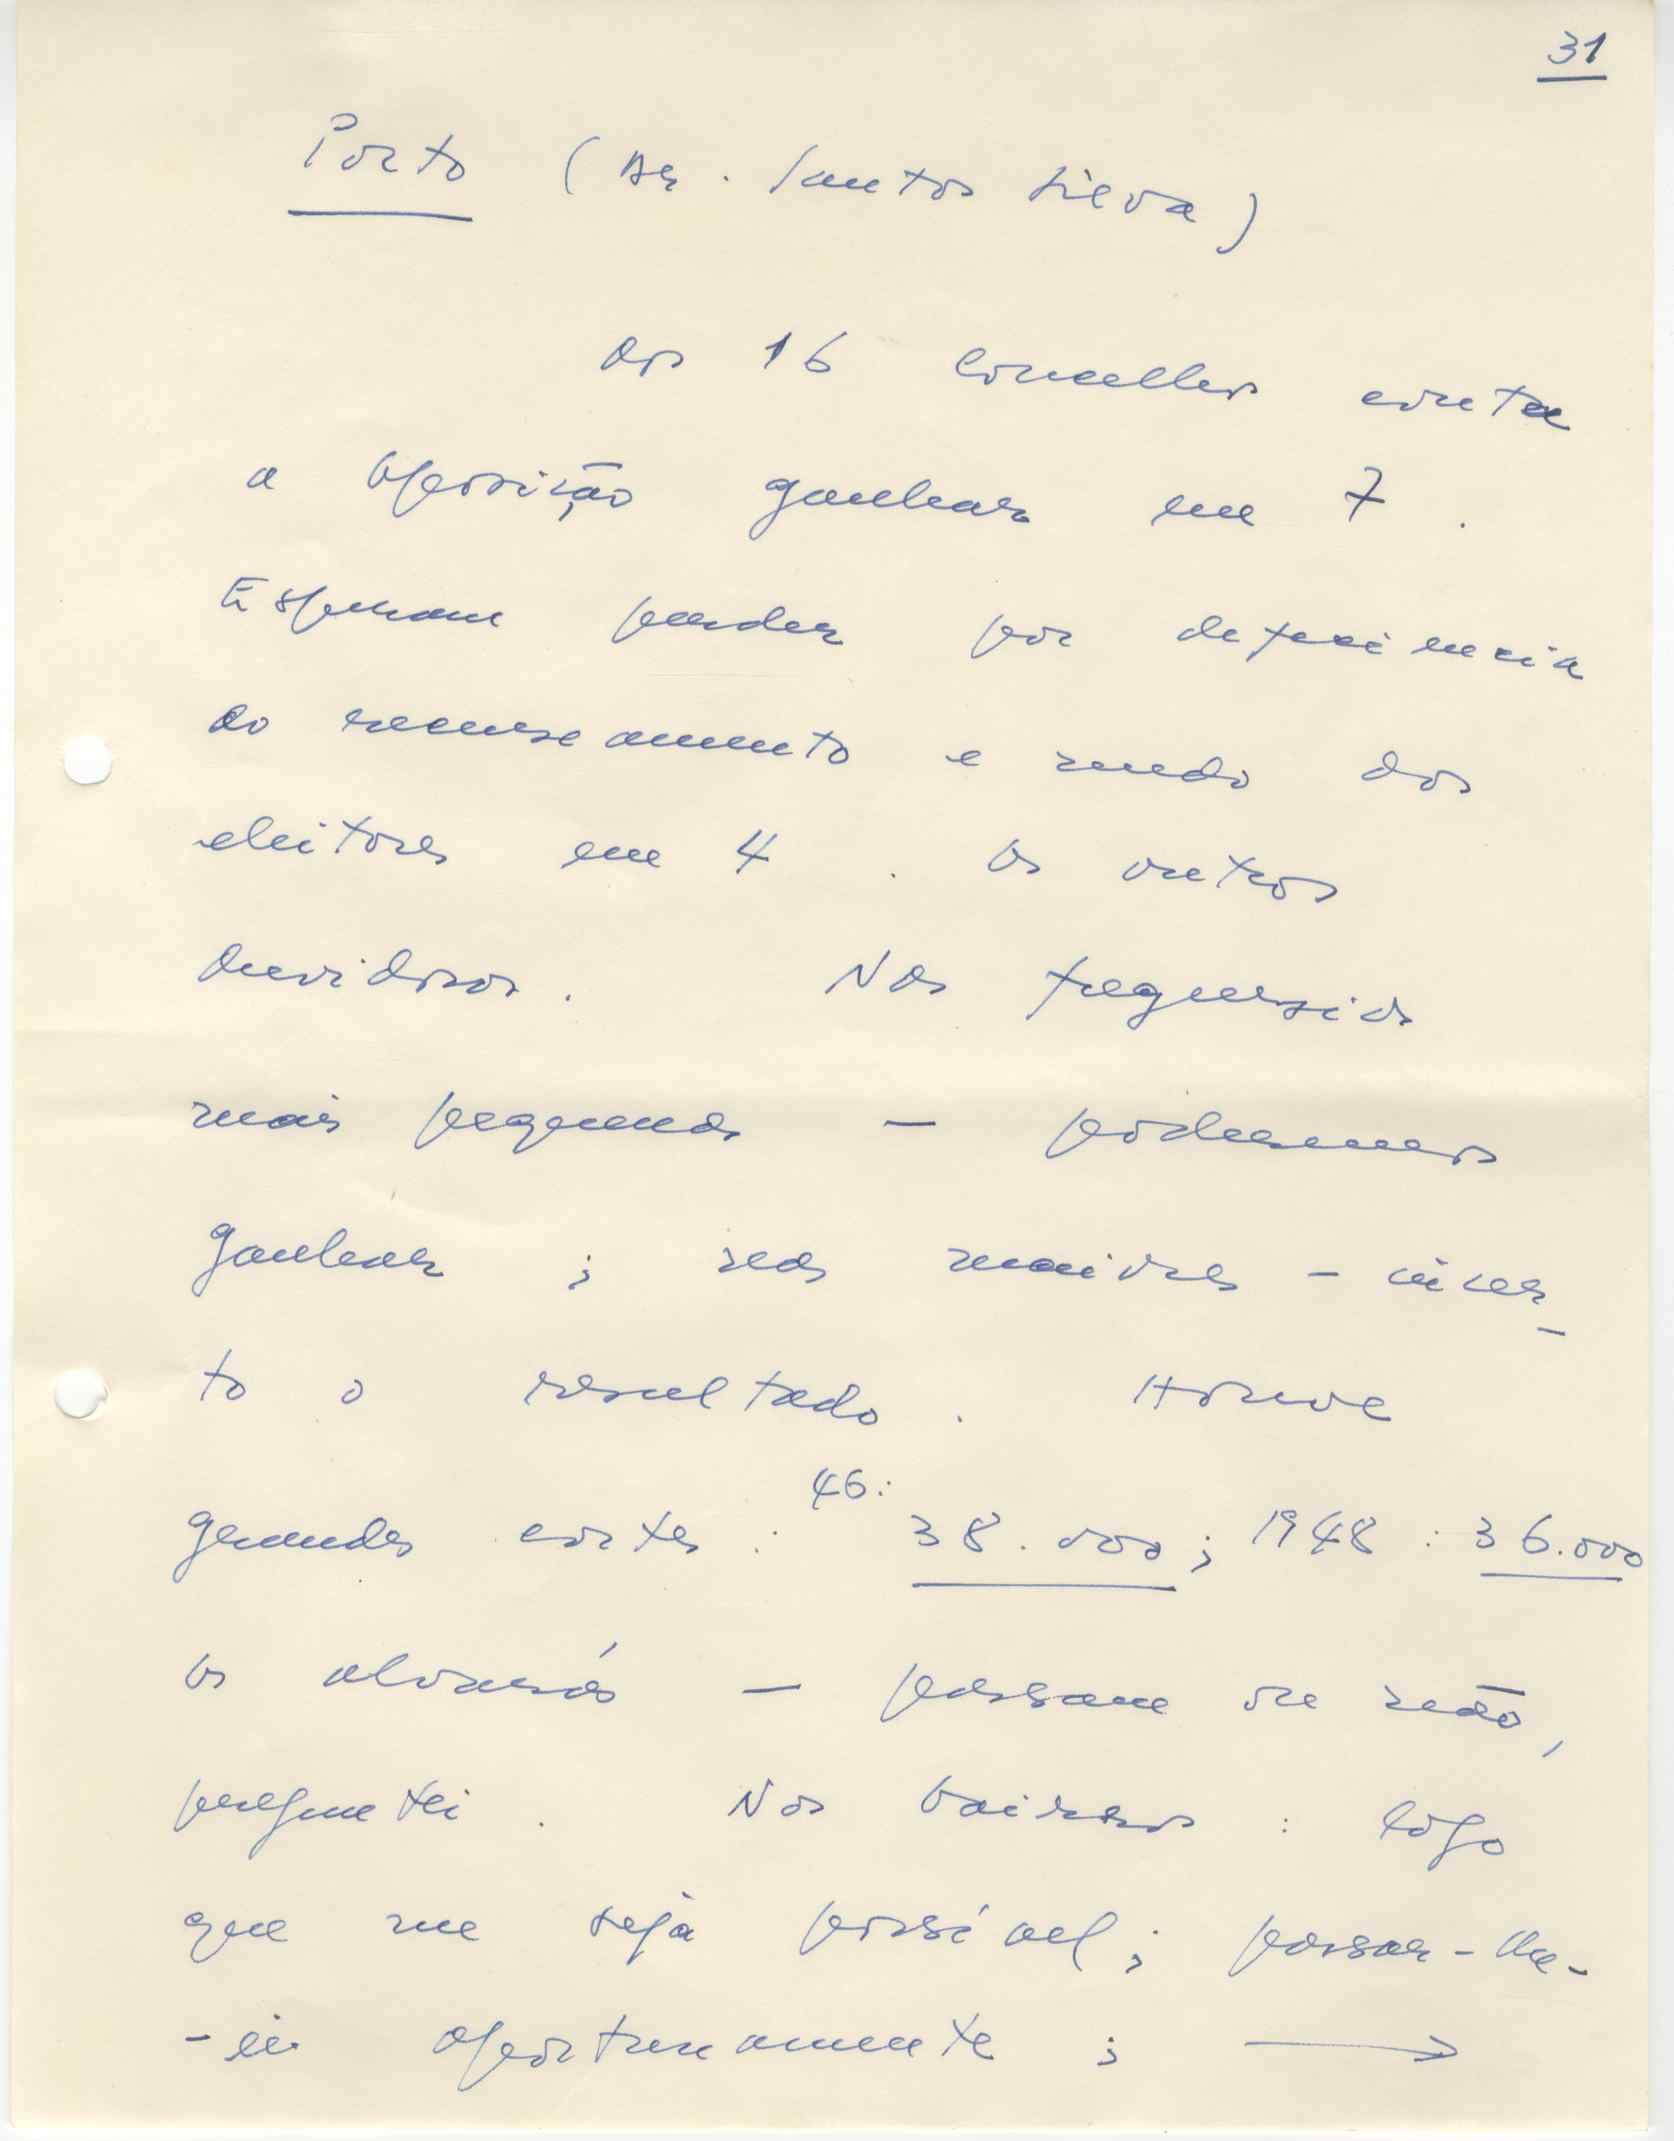 31
Porto (Dr. Santos Silva)
dos 16 concelhos conta
a oposição ganhar em 7.
Esperam perder por deficiencia
do recenseamento e medo dos
eleitores em 4. Os outros
duvidosos. Nas freguesias
mais pequenas — poderemos
ganhar; nas maiores - incer-
to o resultado. Houve
grandes cortes: 46: 38.000; 1948: 36.000
Os alvarás — passam ou não,
preguntei. Nos bairros: logo
que me seja possível; passar-lhe-
-ei oportunamente; →